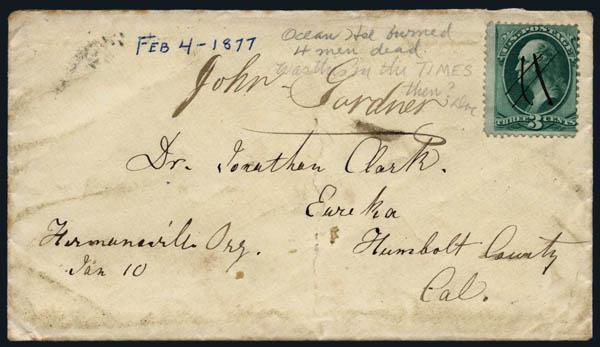 FEB 4-1877
Ocean Hse burned
4 men dead
in the TIMES
then?
John Gardner
U.S. POSTAGE
THREE 3 CENTS
Dr. Jonathan Clark.
Eureka
Humbolt County
Cal.
Hermansville Org.
Jan 10